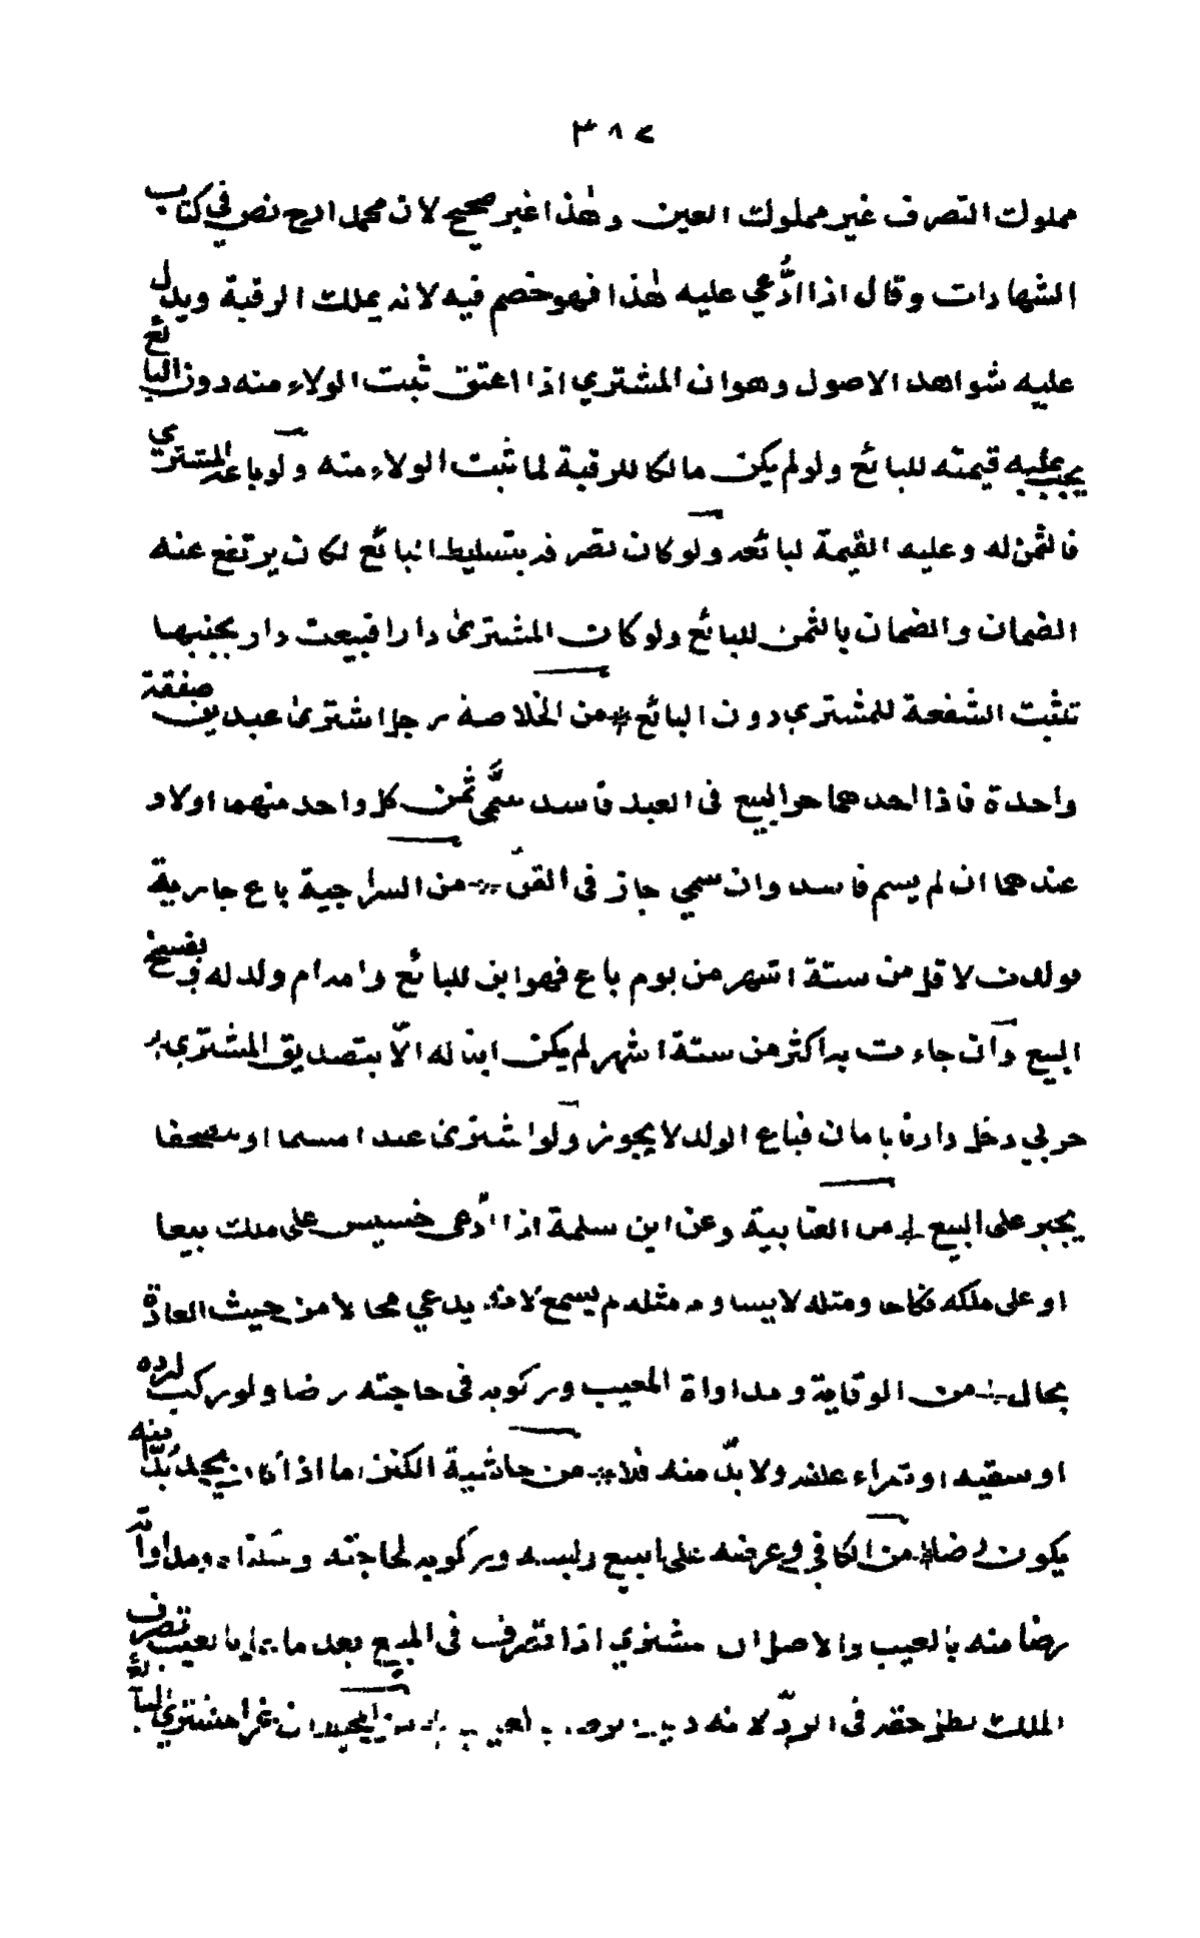 ٣٨٧
مملوك التصرف غير مملوك العين وهذا غير صحيح لان محمدا رح نص في كتاب
الشهادات وقال اذا ادُّعي عليه هٰذا فهو خصم فيه لانه يملك الرقبة ويدل
عليه شواهد الاصول وهو ان المشتري اذا اعتق ثبت الولاء منه دون البائع
يجب عليه قيمته للبائع ولو لم يكن مالكا للرقبة لما ثبت الولاء منه ولو باعه المشتري
فالثمن له وعليه القيمة لبائعه ولو كان تصرفه بتسليط البائع لكان يرتفع عنه
الضمان والضمان بالثمن للبائع ولو كان المشترىٰ دارا فبيعت دار بجنبها
تثبت الشفعة للمشتري دون البائع * من الخلاصة رجل اشترىٰ عبدين صفقة
واحدة فاذا احدهما حر البيع فى العبد فاسد سمَّى ثمن كل واحد منهما اولا و
عندهما ان لم يسم فاسد وان سمي جاز فى القن * من السراجية باع جارية
فولدت لاقل من ستة اشهر من يوم باع فهو ابن للبائع والام ام ولد له ويفسخ
البيع وان جاءت به اكثر من ستة اشهر لم يكن ابنا له الاّ بتصديق المشتري *
حربي دخل دارنا بامان فباع الولد لا يجوز ولو اشترى عبدا مسلما او مصحفا
يجبر على البيع * من العتابية وعن ابن سلمة اذا ادَّعى خسيس على ملك بيعا
او على ملكه نكاحا ومثله لا يساوم مثله لم يسمع لانه يدعي محالا من حيث العادة
بحال * من الوقاية ومداواة المعيب وركوبه فى حاجته رضا ولو ركب لرده
او سقيه او شراء علفه ولا بدّ منه فلا * من حاشية الكنز اما اذا كان يجد بُدّا منه
يكون رضا * من الكافي وعرضه على البيع ولبسه وركوبه لحاجته وسقاه ومداواته
رضا منه بالعيب والاصل ان المشتري اذا تصرف فى المبيع بعد ما بالعيب تصرف
الملاك بطل حقه فى الردّ لانه بالعيب * من اشترىٰ